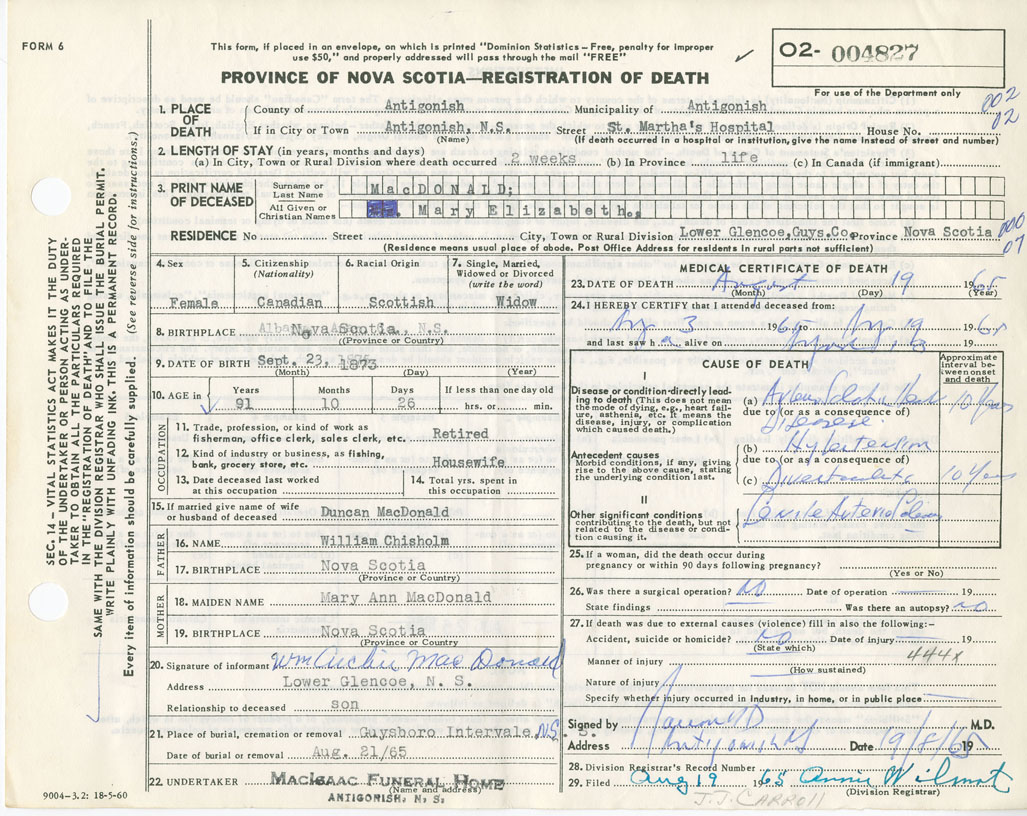 FORM 6
This form, if placed in an envelope, on which is printed "Dominion Statistics – Free, penalty for improper
use $50," and properly addressed will pass through the mail "FREE"
O2- 004827
PROVINCE OF NOVA SCOTIA—REGISTRATION OF DEATH
For use of the Department only
1. PLACE OF DEATH County of Antigonish Municipality of Antigonish 002
If in City or Town Antigonish, N.S. Street St. Martha's Hospital House No. 02
(Name) (If death occurred in a hospital or institution, give the name instead of street and number)
2. LENGTH OF STAY (in years, months and days)
(a) In City, Town or Rural Division where death occurred 2 weeks (b) In Province life (c) In Canada (if immigrant)
3. PRINT NAME OF DECEASED Surname or Last Name MacDONALD:
All Given or Christian Names Mary Elizabeth.
RESIDENCE No Street City, Town or Rural Division Lower Glencoe,Guys.Co. Province Nova Scotia 000
07
(Residence means usual place of abode. Post Office Address for residents in rural parts not sufficient)
4. Sex 5. Citizenship (Nationality) 6. Racial Origin 7. Single, Married, Widowed or Divorced (write the word)
Female Canadian Scottish Widow
8. BIRTHPLACE Nova Scotia, N.S.
(Province or Country)
9. DATE OF BIRTH Sept. 23, 1873
(Month) (Day) (Year)
10. AGE in Years Months Days If less than one day old
91 10 26 hrs. or min.
OCCUPATION
11. Trade, profession, or kind of work as
fisherman, office clerk, sales clerk, etc. Retired
12. Kind of industry or business, as fishing,
bank, grocery store, etc. Housewife
13. Date deceased last worked at this occupation 14. Total yrs. spent in this occupation
15. If married give name of wife
or husband of deceased Duncan MacDonald
FATHER
16. NAME William Chisholm
17. BIRTHPLACE Nova Scotia
(Province or Country)
MOTHER
18. MAIDEN NAME Mary Ann MacDonald
19. BIRTHPLACE Nova Scotia
(Province or Country)
20. Signature of informant Wm Archie MacDonald
Address Lower Glencoe, N. S.
Relationship to deceased son
21. Place of burial, cremation or removal Guysboro Intervale, N.S.
Date of burial or removal Aug. 21/65
22. UNDERTAKER MacIsaac Funeral Home
(Name and address)
ANTIGONISH, N. S.
MEDICAL CERTIFICATE OF DEATH
23. DATE OF DEATH August 19 1965
(Month) (Day) (Year)
24. I HEREBY CERTIFY that I attended deceased from:
Aug 3 1965 to Aug 19 1965
and last saw h alive on
CAUSE OF DEATH
Approximate interval between onset and death
I
Disease or condition-directly leading to death (This does not mean the mode of dying, e.g., heart failure, asthenia, etc. It means the disease, injury, or complication which caused death.)
(a) Heart 10 Years
due to (or as a consequence of)
Disease
Antecedent causes
Morbid conditions, if any, giving rise to the above cause, stating the underlying condition last.
(b) Hypertension
due to (or as a consequence of)
(c) 10 Years
II
Other significant conditions contributing to the death, but not related to the disease or condition causing it.
Senile
25. If a woman, did the death occur during
pregnancy or within 90 days following pregnancy?
(Yes or No)
26. Was there a surgical operation? No Date of operation 19
State findings Was there an autopsy? No
27. If death was due to external causes (violence) fill in also the following:-
Accident, suicide or homicide? No Date of injury 19
(State which) 444x
Manner of injury
(How sustained)
Nature of injury
Specify whether injury occurred in industry, in home, or in public place
Signed by M.D.
Address Antigonish NS Date 19/8/65 19
28. Division Registrar's Record Number
29. Filed Aug 19 1965 Annie Wilmot
(Division Registrar)
J.J. CARROLL
9004-3.2: 18-5-60
SEC. 14 – VITAL STATISTICS ACT MAKES IT THE DUTY
OF THE UNDERTAKER OR PERSON ACTING AS UNDER-
TAKER TO OBTAIN ALL THE PARTICULARS REQUIRED
IN THE "REGISTRATION OF DEATH" AND TO FILE THE
SAME WITH THE DIVISION REGISTRAR WHO SHALL ISSUE THE BURIAL PERMIT.
WRITE PLAINLY WITH UNFADING INK. THIS IS A PERMANENT RECORD.
Every item of information should be carefully supplied. (See reverse side for instructions.)